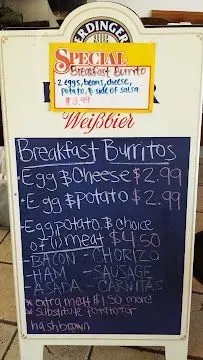 ERDINGER
SPECIAL
Breakfast Burrito
2 eggs, beans, cheese,
potato, & side of salsa
$3.99
Weißbier
Breakfast Burritos
• Egg & Cheese $2.99
• Egg & potato $2.99
• Egg potato & choice
of meat $4.50
- BACON - CHORIZO
- HAM - SAUSAGE
- ASADA - CARNITAS
* extra meat $1.50 more
* substitute potato for
hashbrown